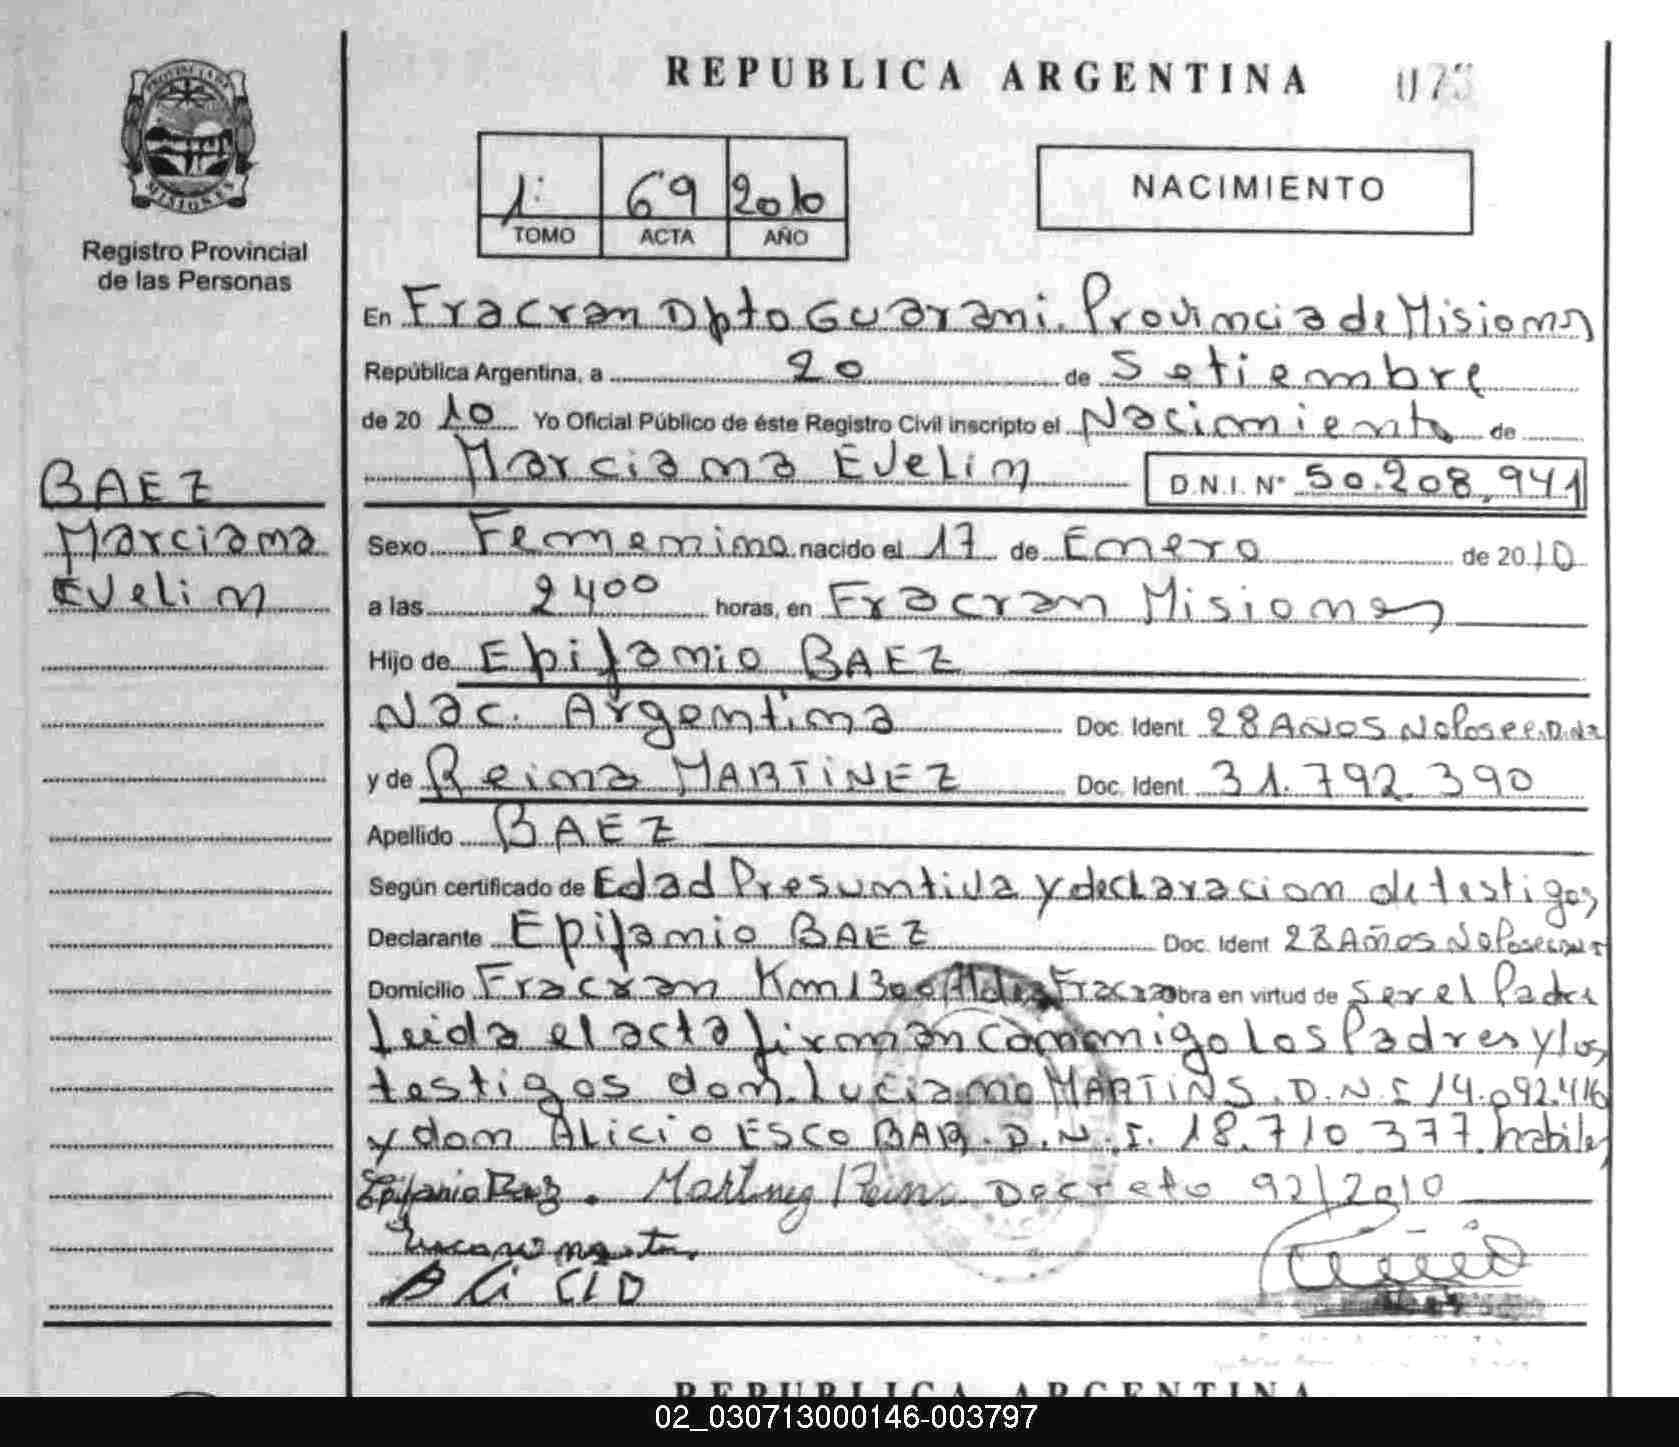 REPUBLICA ARGENTINA 073
PROVINCIA DE MISIONES
Registro Provincial
de las Personas
1º 69 2010
TOMO ACTA AÑO
NACIMIENTO
En Fracran Dpto Guarani. Provincia de Misiones
República Argentina, a 20 de Setiembre
de 2010 Yo Oficial Público de éste Registro Civil inscripto el Nacimiento de
Marciana Evelin D.N.I. Nº 50.208.941
BAEZ
Marciana
Evelin
Sexo Femenino nacido el 17 de Enero de 2010
a las 2400 horas, en Fracran Misiones
Hijo de Epifanio BAEZ
Nac. Argentina Doc. Ident. 28 AÑOS No Posee D.N.I
y de Reina MARTiNEZ Doc. Ident. 31.792.390
Apellido BAEZ
Según certificado de Edad Presuntiva y declaracion de testigos
Declarante Epifanio BAEZ Doc. Ident 28 Años No Posee DNI
Domicilio Fracran Km 1300 Aldea Fracran obra en virtud de Ser el Padre
Leida el acta firman conmigo los Padres y los
testigos don Luciano MARTiNS. D.N.I 14.092.416
y don ALiCiO ESCOBAR. D.N.I. 18.710.377. habiles
Epifanio Baez. Martinez Reina Decreto 92/2010
ALiCIO
REPUBLICA ARGENTINA
02_030713000146-003797